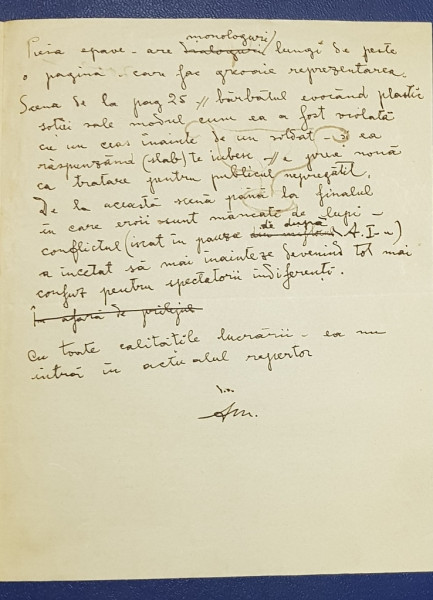 Piesa epave - are monologuri lungi de peste
o pagină - care fac greoaie reprezentarea.
Scena de la pag 25 // bărbatul evocând plastic
soției sale modul cum ea a fost violată
cu un ceas înainte de un soldat - și ea
răspunzând (slab) te iubesc // e prea nouă
ca tratare pentru publicul nepregătit.
De la această scenă până la finalul
în care eroii sunt mâncați de lupi -
conflictul (iscat în pauza de după A.I-u)
a încetat să mai înainteze devenind tot mai
confuz pentru spectatorii indiferenți.
În afară de prilejul
Cu toate calitățile lucrării - ea nu
intră în actualul repertor